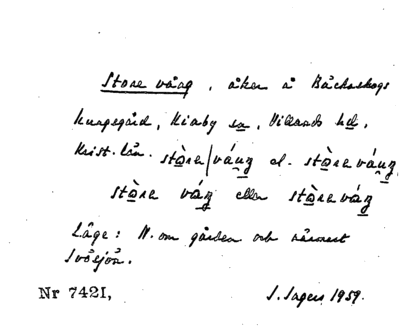 Store vång, åker å Bäckaskogs
kungsgård, Kiaby sn, Villands hd,
Krist. län. stòre/váŋg el. stòreváŋg,
stòre váŋg eller stòreváŋg
Läge: N. om gården och närmast
Ivösjön.
Nr 7421, S. Ingers 1959.